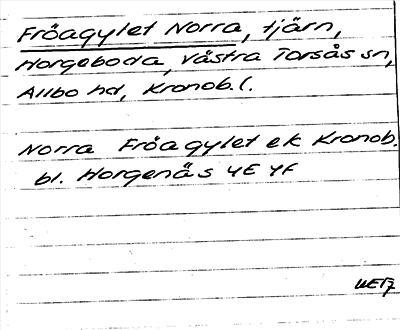 Fröagylet Norra, tjärn,
Horgeboda, Västra Torsås sn,
Allbo hd, Kronob. l.
Norra Fröagylet ek Kronob.
bl. Horgenäs 4E 4F